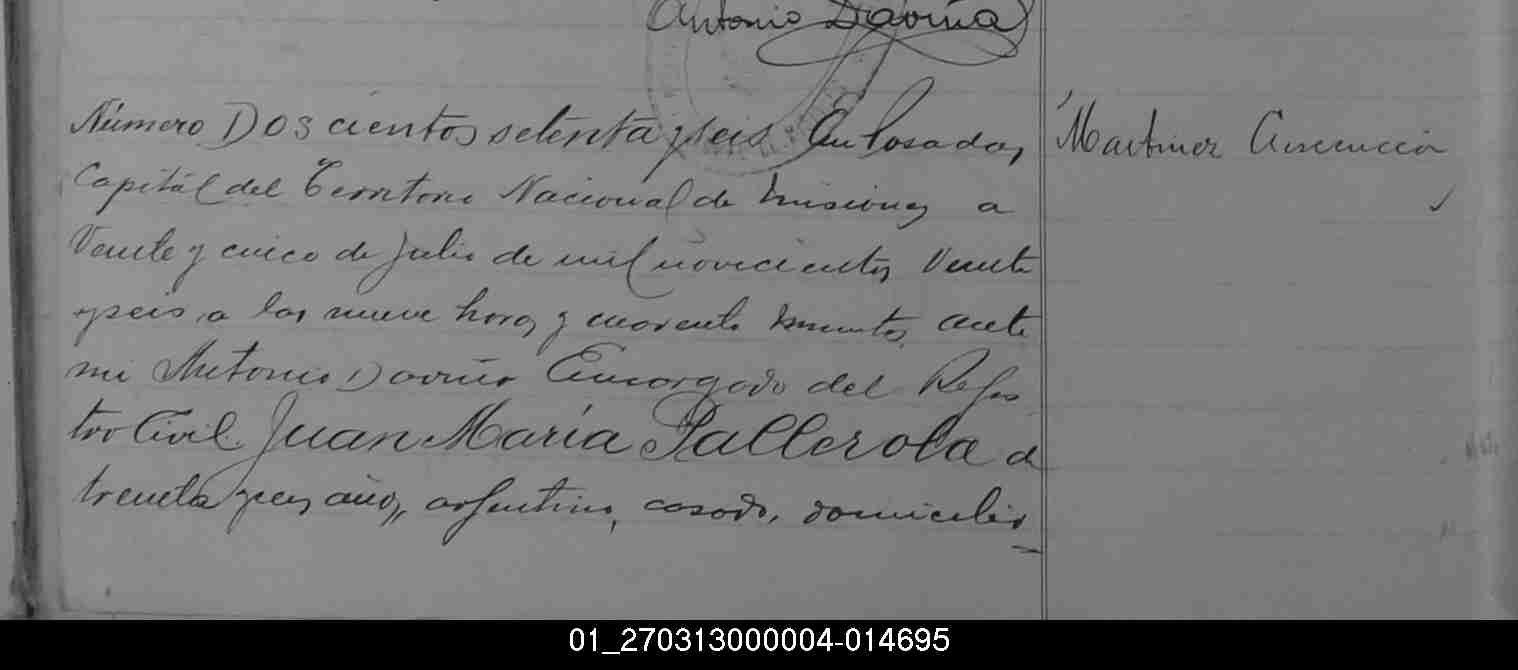 Antonio Daviña
Número Doscientos setenta y seis En Posadas,
Capitál del Territorio Nacional de Misiones a
Veinte y cinco de Julio de mil novecientos Veinte
y seis, a las nueve horas y cuarenta minutos, ante
mi Antonio Daviña Encargado del Regis
tro Civil, Juan María Pallerola de
treinta y seis años, argentino, casado, domicilia
Martinez Asuncion
01_270313000004-014695